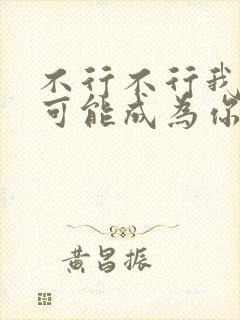 不行不行我
可能成为你
黄昌振